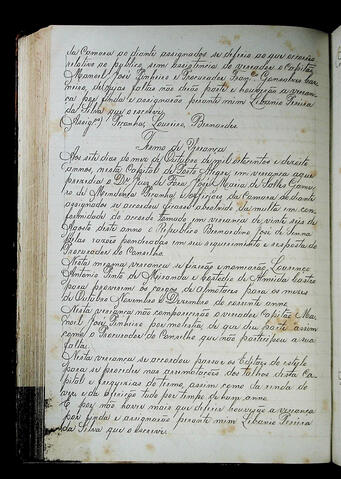 da Camara ao diante assignados se deferio ao que occorreo
relativo ao publico sem assistencia do vereador o Capitão
Manoel José Pinheiro e Procurador Gonsalves Car
neiro, de cujas faltas não derão parte e houve-se a verean
ça por finda e assignarão perante mim Libanio Pereira
da Silva que o escrevi
Peranha, Loureiro, Bernardes.
Termo de Vereança
Aos sete dias do mez de Outubro de mil oitocentos e dezoito
annos, nesta Capital de Porto Alegre, em vereança a que
presidio o Dr. Juiz de Fora José Maria de Salles Game
ro de Mendonça Peranha, e Officiaes da Camara ao diante
assignados se accordou ficasse absolvido da multa em con
formidade do accordo tomado em vereança de vinte seis de
Agosto deste anno o Republico Bernardino José de Senna
pelas razões ponderadas em seu requerimento e resposta do
Procurador do Conselho.
Nesta mesma vereança se fizerão e nomearão, Lourenço
Antonio Pinto de Miranda e Custodio de Almeida Castro
para proverem os cargos de Almotaces para os mezes
de Outubro Novembro e Dezembro do corrente anno.
Nesta vereança não compareceo o vereador Capitão Ma
noel José Pinheiro por molestia de que deu parte assim
como o Procurador do Conselho que não participou a sua
falta.
Nesta vereança se accordou passar os Editaes de estylo
para se proceder nas arrematações dos talhos desta Ca
pital e freguezias do termo, assim como da renda do
ver e da afferição tudo por tempo de hum anno.
E por não haver mais que deferir houve-se a vereança
por finda e assignarão perante mim Libanio Pereira
da Silva que o escrevi.